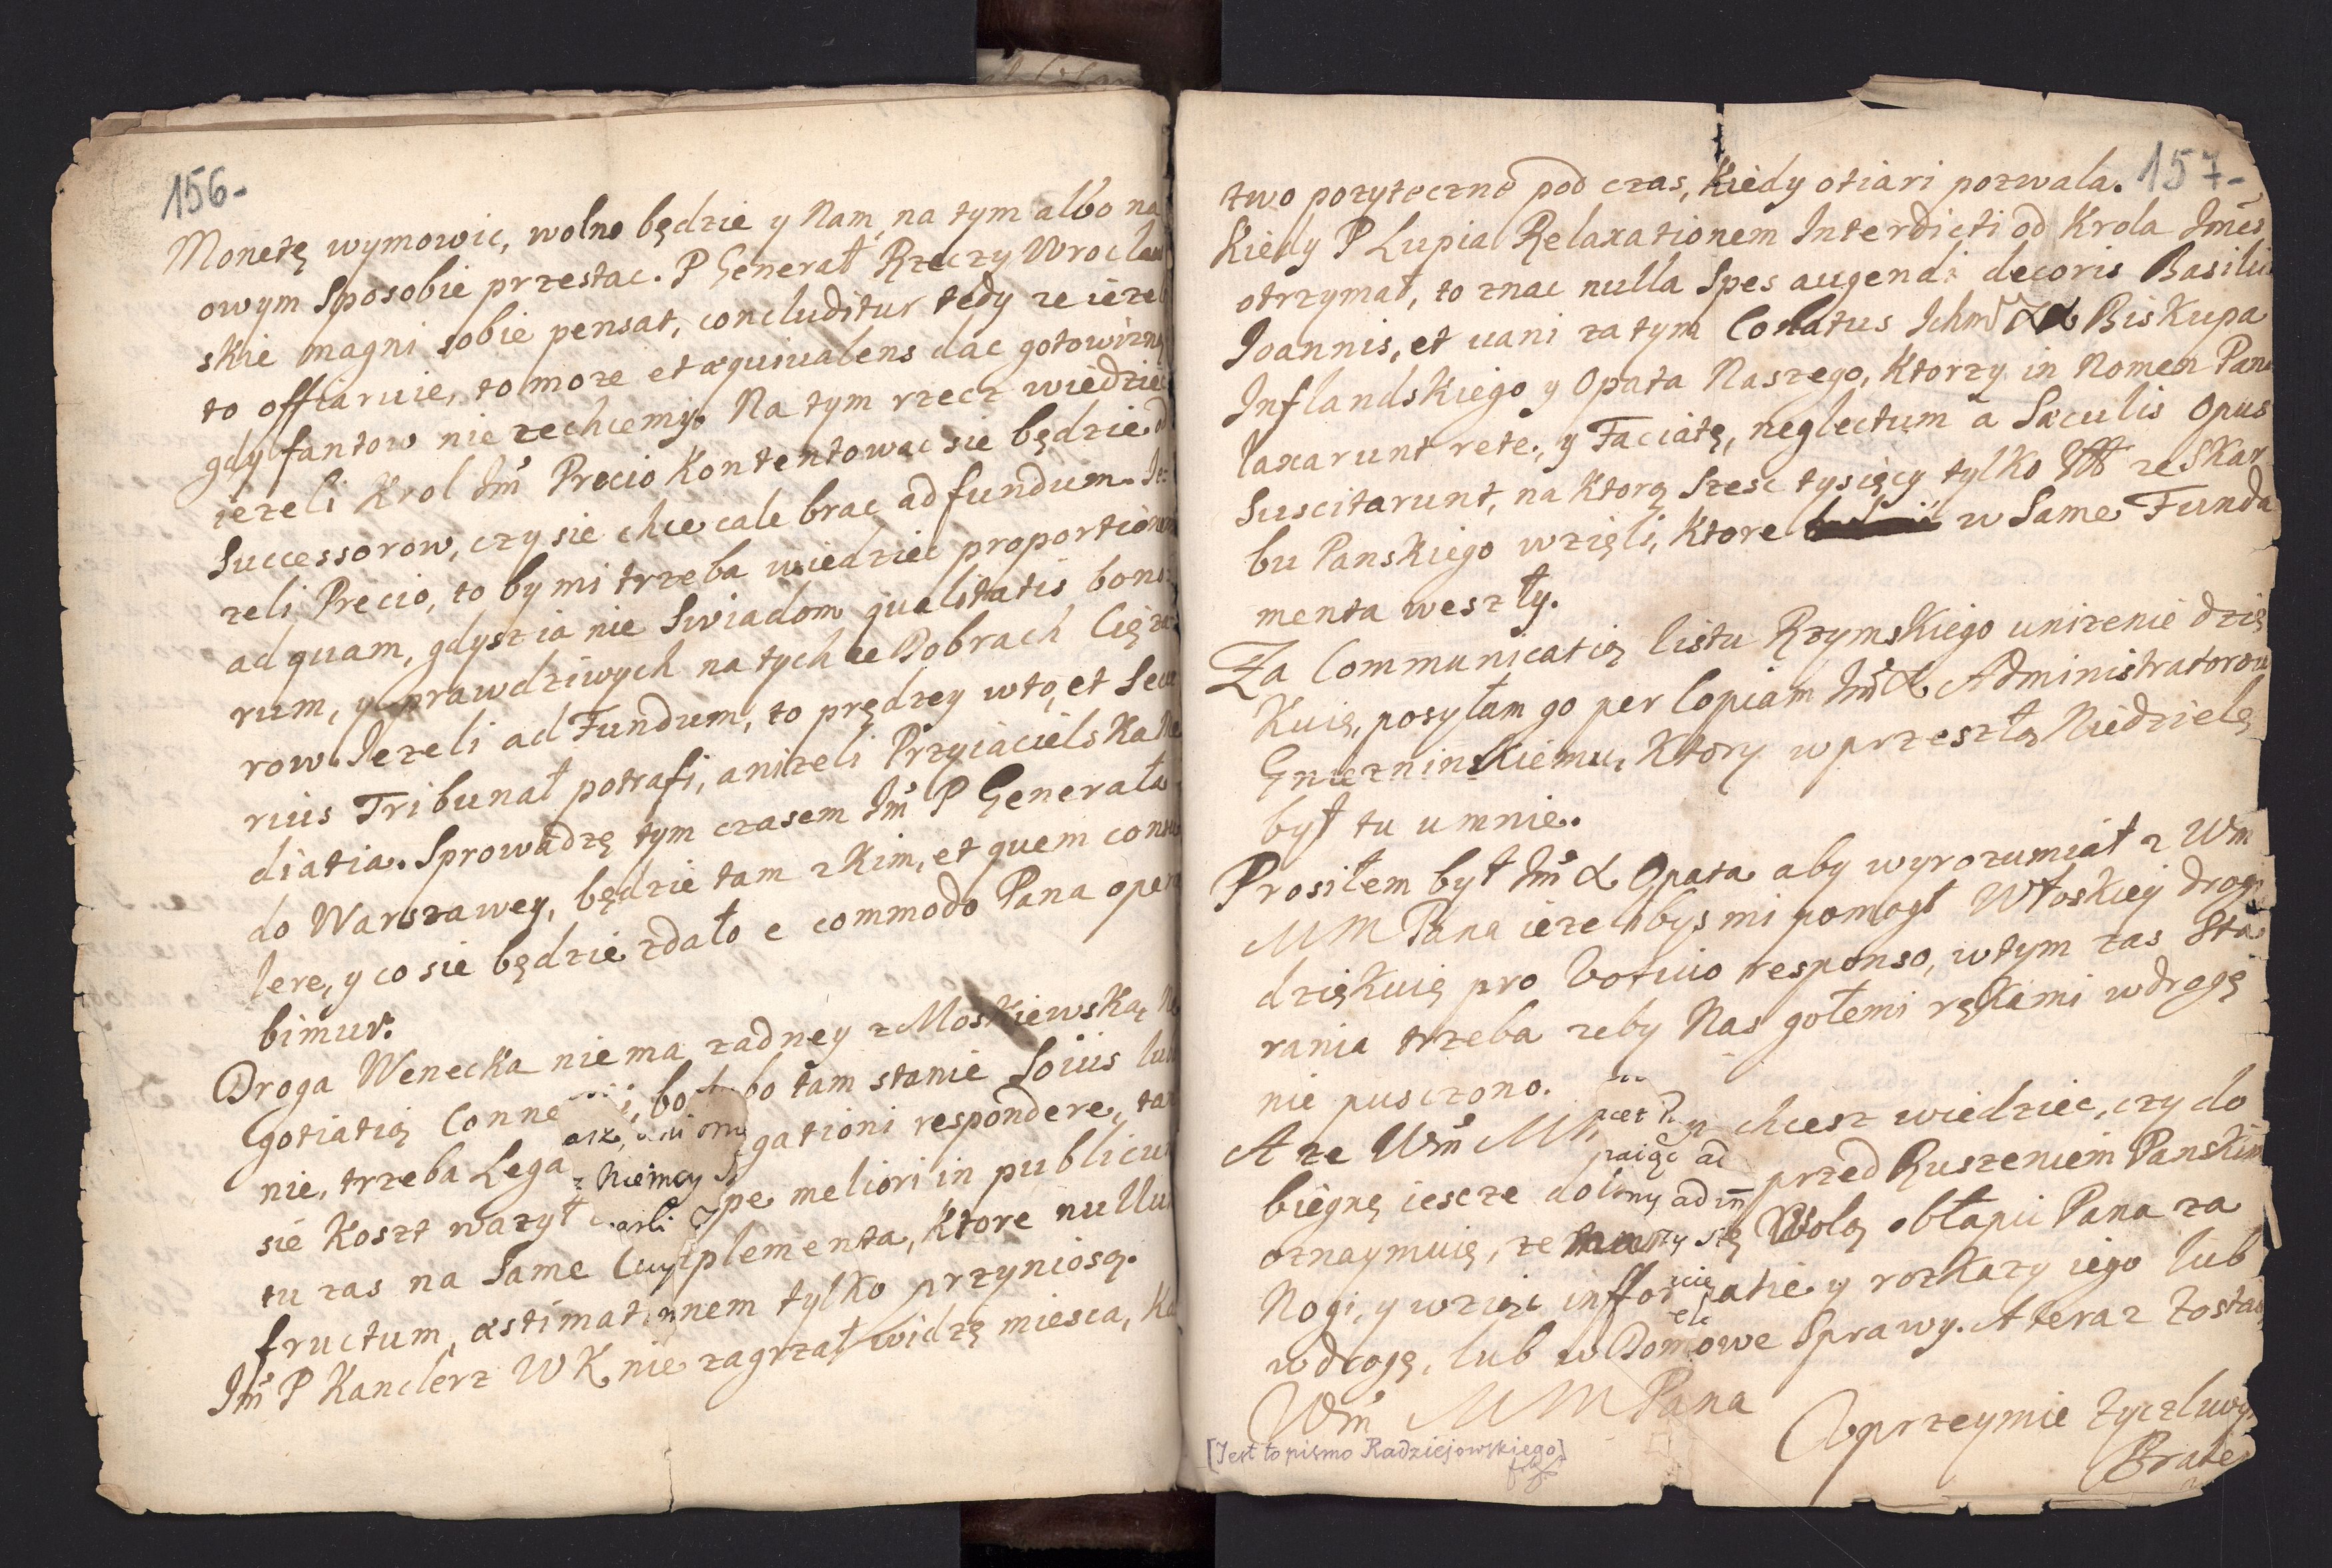 156-
Monetę wymowic, wolno będzie y Nam, na tym albo na
owym Sposobie przestac. P Generał Rzeczy Wrocław
skie magni sobie pensat, concluditur tedy ze ieze
to offiaruie, to moze et æquiualens dac gotowizną
gdy fantow nie zechcemy. Na tym rzecz wiedziec
iezeli Krol Jm̃ Precio Kontentowac sie będzie
Successorow, czy sie chce cale brac ad fundum. Je
zeli Precio, to by mi trzeba wiedziec proportion
ad quam, gdysz ia nie Swiadom qualitatis bono
rum, y prawdziwych na tych Dobrach Cięza
row. Jezeli ad Fundum, to prędzey w to, et Seue
rius Tribunał potrafi, anizeli Przyiacielska Me
diatia. Sprowadzę tym czasem Jm̃ P Generała
do Warszawey, będzie tam z kim, et quem consu
lere, y co sie będzie zdało e commodo Pana ope
bimur.
Droga Wenecka niema zadney z Moskiewską Ne
gotiatią Conne bo tam stanie Soius
nie, trzeba Lega gationi respondere, ta
sie Koszt wazył spe meliori in publicu
z Niemcy
tu zas na Same Complementa, Ktore nullu
fructum, æstimationem tylko przyniosą.
Jm̃ P Kanclerz WK nie zagrzał widzę miesca,
157-
two pozyteczne pod czas, Kiedy otiari pozwala.
Kiedy P Lupia Relaxationem Interdicti od Krola Jm̃ci
otrzymał, to znac nulla Spes augendi decoris Basilic
Joannis, et uani za tym Conatus Ichm̃ Biskupa
Inflandskiego y Opata Naszego, Ktorzy in Nomen Pana
laxarunt rete, y Faciatę, neglectum a Sæculis Opus
Suscitarunt, na Ktorą Szesc tysięcy tylko ze Skar
bu Panskiego wzięli, Ktore w Same Funda
menta weszły.
Za Communicatią listu Rzymskiego unizenie dzię
Kuię, posyłam go per Copiam Jm̃ X Administratorow
Gniezninskiemu, Ktory w przeszłą Niedzielę
był tu u mnie.
Prosiłem był Jm̃ X Opata aby wyrozumiał z Wm
MM Pana iezelibys mi pomogł Włoskiey drogi
dziękuię pro Votiuo responso, w tym zas Sta
rania trzeba zeby Nas gołemi rękami w drogę
nie pusczono.
A ze Wm̃ M chcesz wiedziec, czy do
biegnę iescze do przed Ruszeniem Panskim
oznaymuię, ze Wolą obłapic Pana za
Nogi, y wziąc inffor matie y rozkazy iego lub
w drogę, lub w Domowe Sprawy. A teraz Zostaię
Wm̃ MM Pana
Uprzeymie zyczliwym
Brate
[Jest to pismo Radziejowskiego]